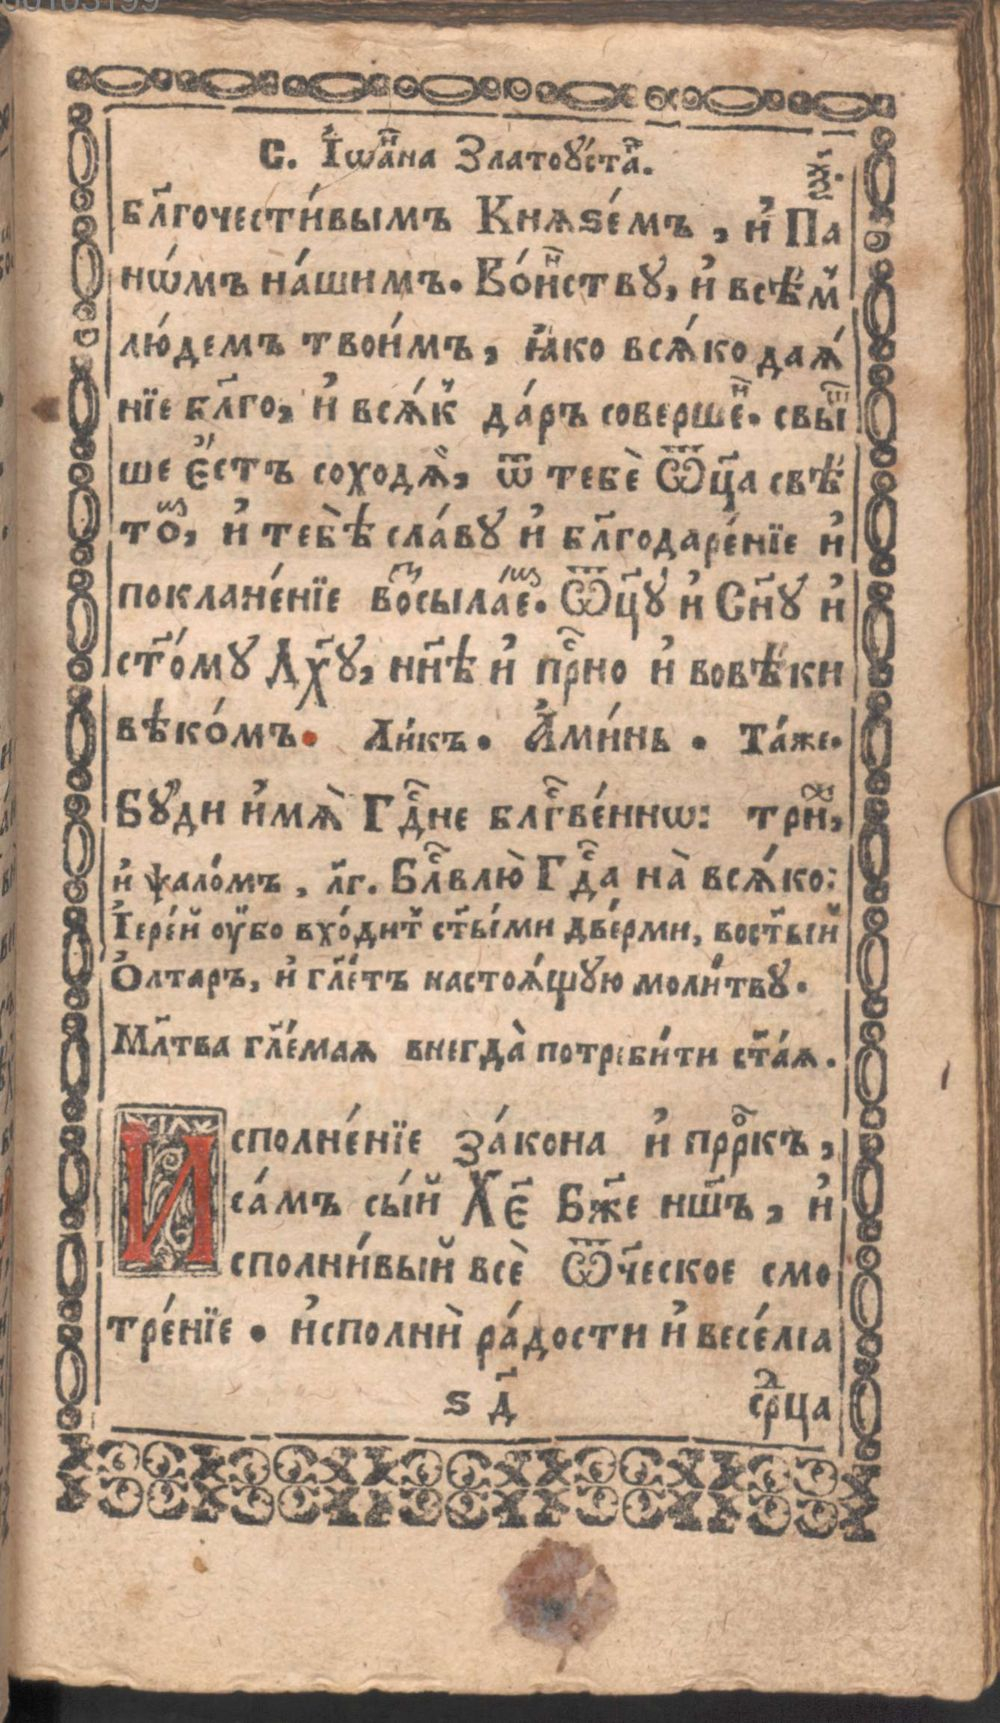 С. І҆ѡа҆́нⷩ҇а Златоꙋ́стаⷢ҇.
бл҃гочести́вымъ Кнѧѕе́мъ, и҆ Па
нѡ́мъ на́шимъ. Во́инⷭ҇ству, и҆ всѣ́мъ
лю́демъ твои́мъ, ꙗ҆́ко всѧ́ко даѧ́
нїе бл҃го, и҆ всѧ́къ да́ръ соверше́нⷩ҇. свы́
ше є҆́стъ соходѧ̀, ѿ тебѐ Ѿц҃а свѣ́
тоⷨ҇, и҆ тебѣ̀ сла́вꙋ и҆ бл҃годаре́нїе и҆
покланѐнїе воⷥ҇сыла́еⷨ҇. Ѿц҃ꙋ́ и҆ Сн҃ꙋ и҆
ст҃о́мꙋ Дх҃ꙋ, нн҃ѣ и҆ прⷭ҇но и҆ вовѣ́ки
вѣко́мъ. Ли́къ. А҆ми́нь. Та́же.
Бꙋ́ди и҆́мѧ̀ Гдⷭ҇не блгⷭ҇ве́ннѡ: триⷤ҇,
и҆ ѱало́мъ, лг҃. Блⷭ҇влю̀ Гдⷭ҇а на̀ всѧ́ко:
І҆ере́й оу҆́бо вхо́дитъ ст҃ы́ми две́рми, вост҃ы́й
О҆лтаръ, и҆ гл҃етъ настоѧ́щꙋю моли́твꙋ.
Мл҃тва гл҃е́маѧ внегда̀ потреби́ти ст҃а́ѧ.
Исполне́нїе за́кона и҆ прⷪ҇ркъ,
са́мъ сы́й Хе҃ Бж҃е нш҃ъ, и҆
сполни́вый всѐ Ѿч҃еское смо
тре́нїе. и҆сполнѝ ра́дости и҆ весе́лїа
ѕ д҃ срⷣца